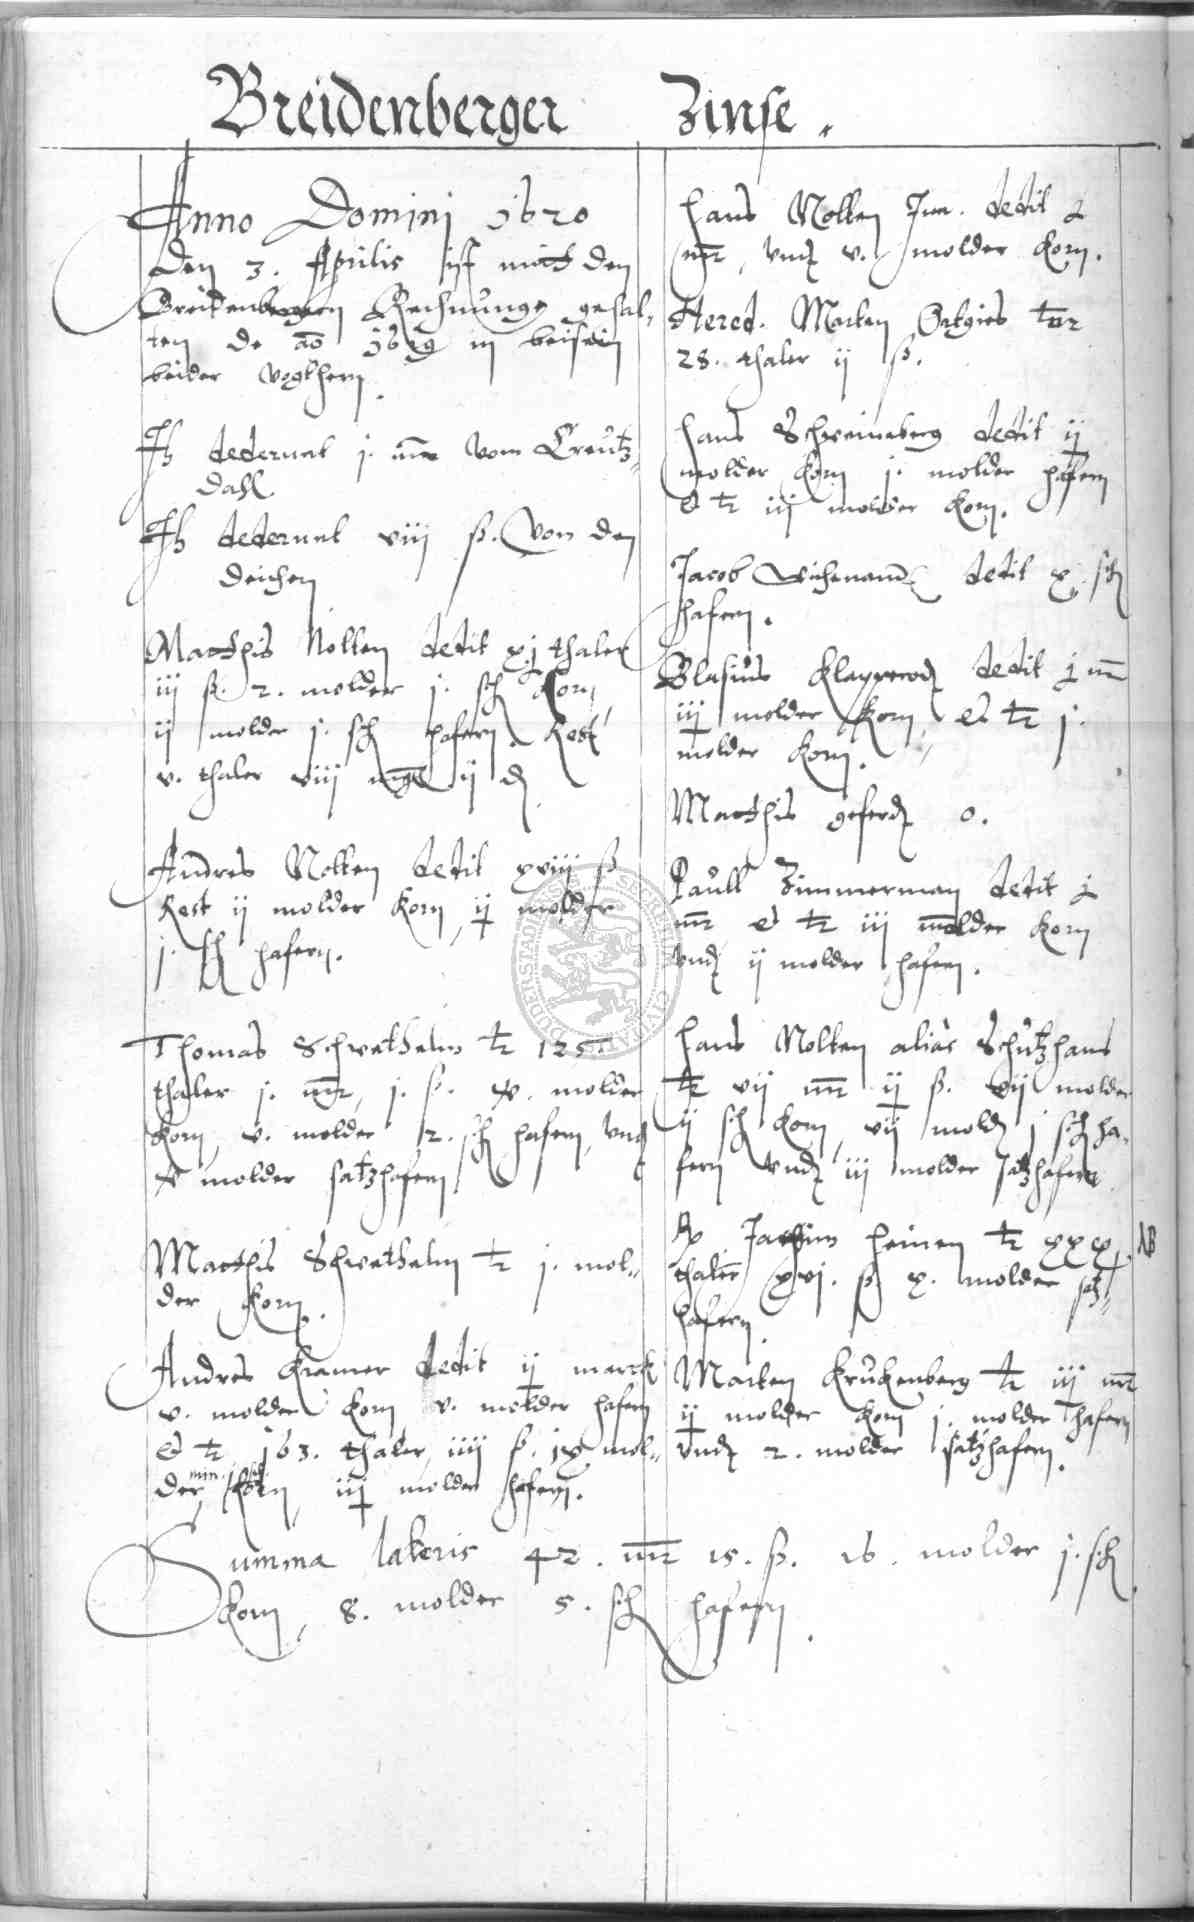 Breidenberger Zinse.
Anno Domini 1620
den 3. Aprilis ist mitt den
Breidenbergern Rechnunge gehal-
ten de ao 1619 in beisein
beider Vogthern.
Jh dederunt j. mr vom Creutz-
dahl
Jh dederunt viij ß. von den
deichen
Matthis Nolten dedit xj thaler
iij ß. 2. molder j. sch Korn,
ij molder j. sch hafern. Rest
v. thaler viij mg ij d
Andres Nolten dedit xviij ß
Rest ij molder Korn, ij molder
j. sch hafern.
Thomas Schwethelm tr 125.
thaler j. mr, j. ß. x. molder
Korn, v. molder 2. sch hafern, vnd
x molder satzhafern
Matthis Schwethelm tr j. mol-
der Korn.
Andres Kramer dedit ij marck
v. molder Korn v. molder hafern
et tr 163. thaler, iiij ß. ix mol-
der, min. j sch Korn, iij molder hafern.
Hans Nolten Jun. dedit
mr, vnd v. molder Korn.
Hered. Marten tr
28. thaler ij ß.
Hans Schweineberg dedit ij
molder Korn j. molder hafern
et tr iij molder Korn.
Jacob Wichenand dedit x. sch
hafern.
Blasius Klapperodt dedit j mr
iij molder Korn, et tr j.
molder Korn.
Matthis geferdt 0.
Paull Zimmerman dedit j
mr et tr iij molder Korn
vnd ij molder hafern.
Hans Nolten alias Schützhans
tr vij mr ij ß. vij molder
ij sch Korn, vij mold j sch ha-
fern vnd iij molder satzhafern
Jachim Heinen tr xxx. NB
thaler xvj. ß x. molder satz-
hafern.
Marten Krukenberg tr iij mr
ij molder Korn j. molder hafern
vnd 2. molder satzhafern.
Summa lateris 42. mr 15. ß. 16. molder j. sch
Korn, 8. molder 5. sch hafern.